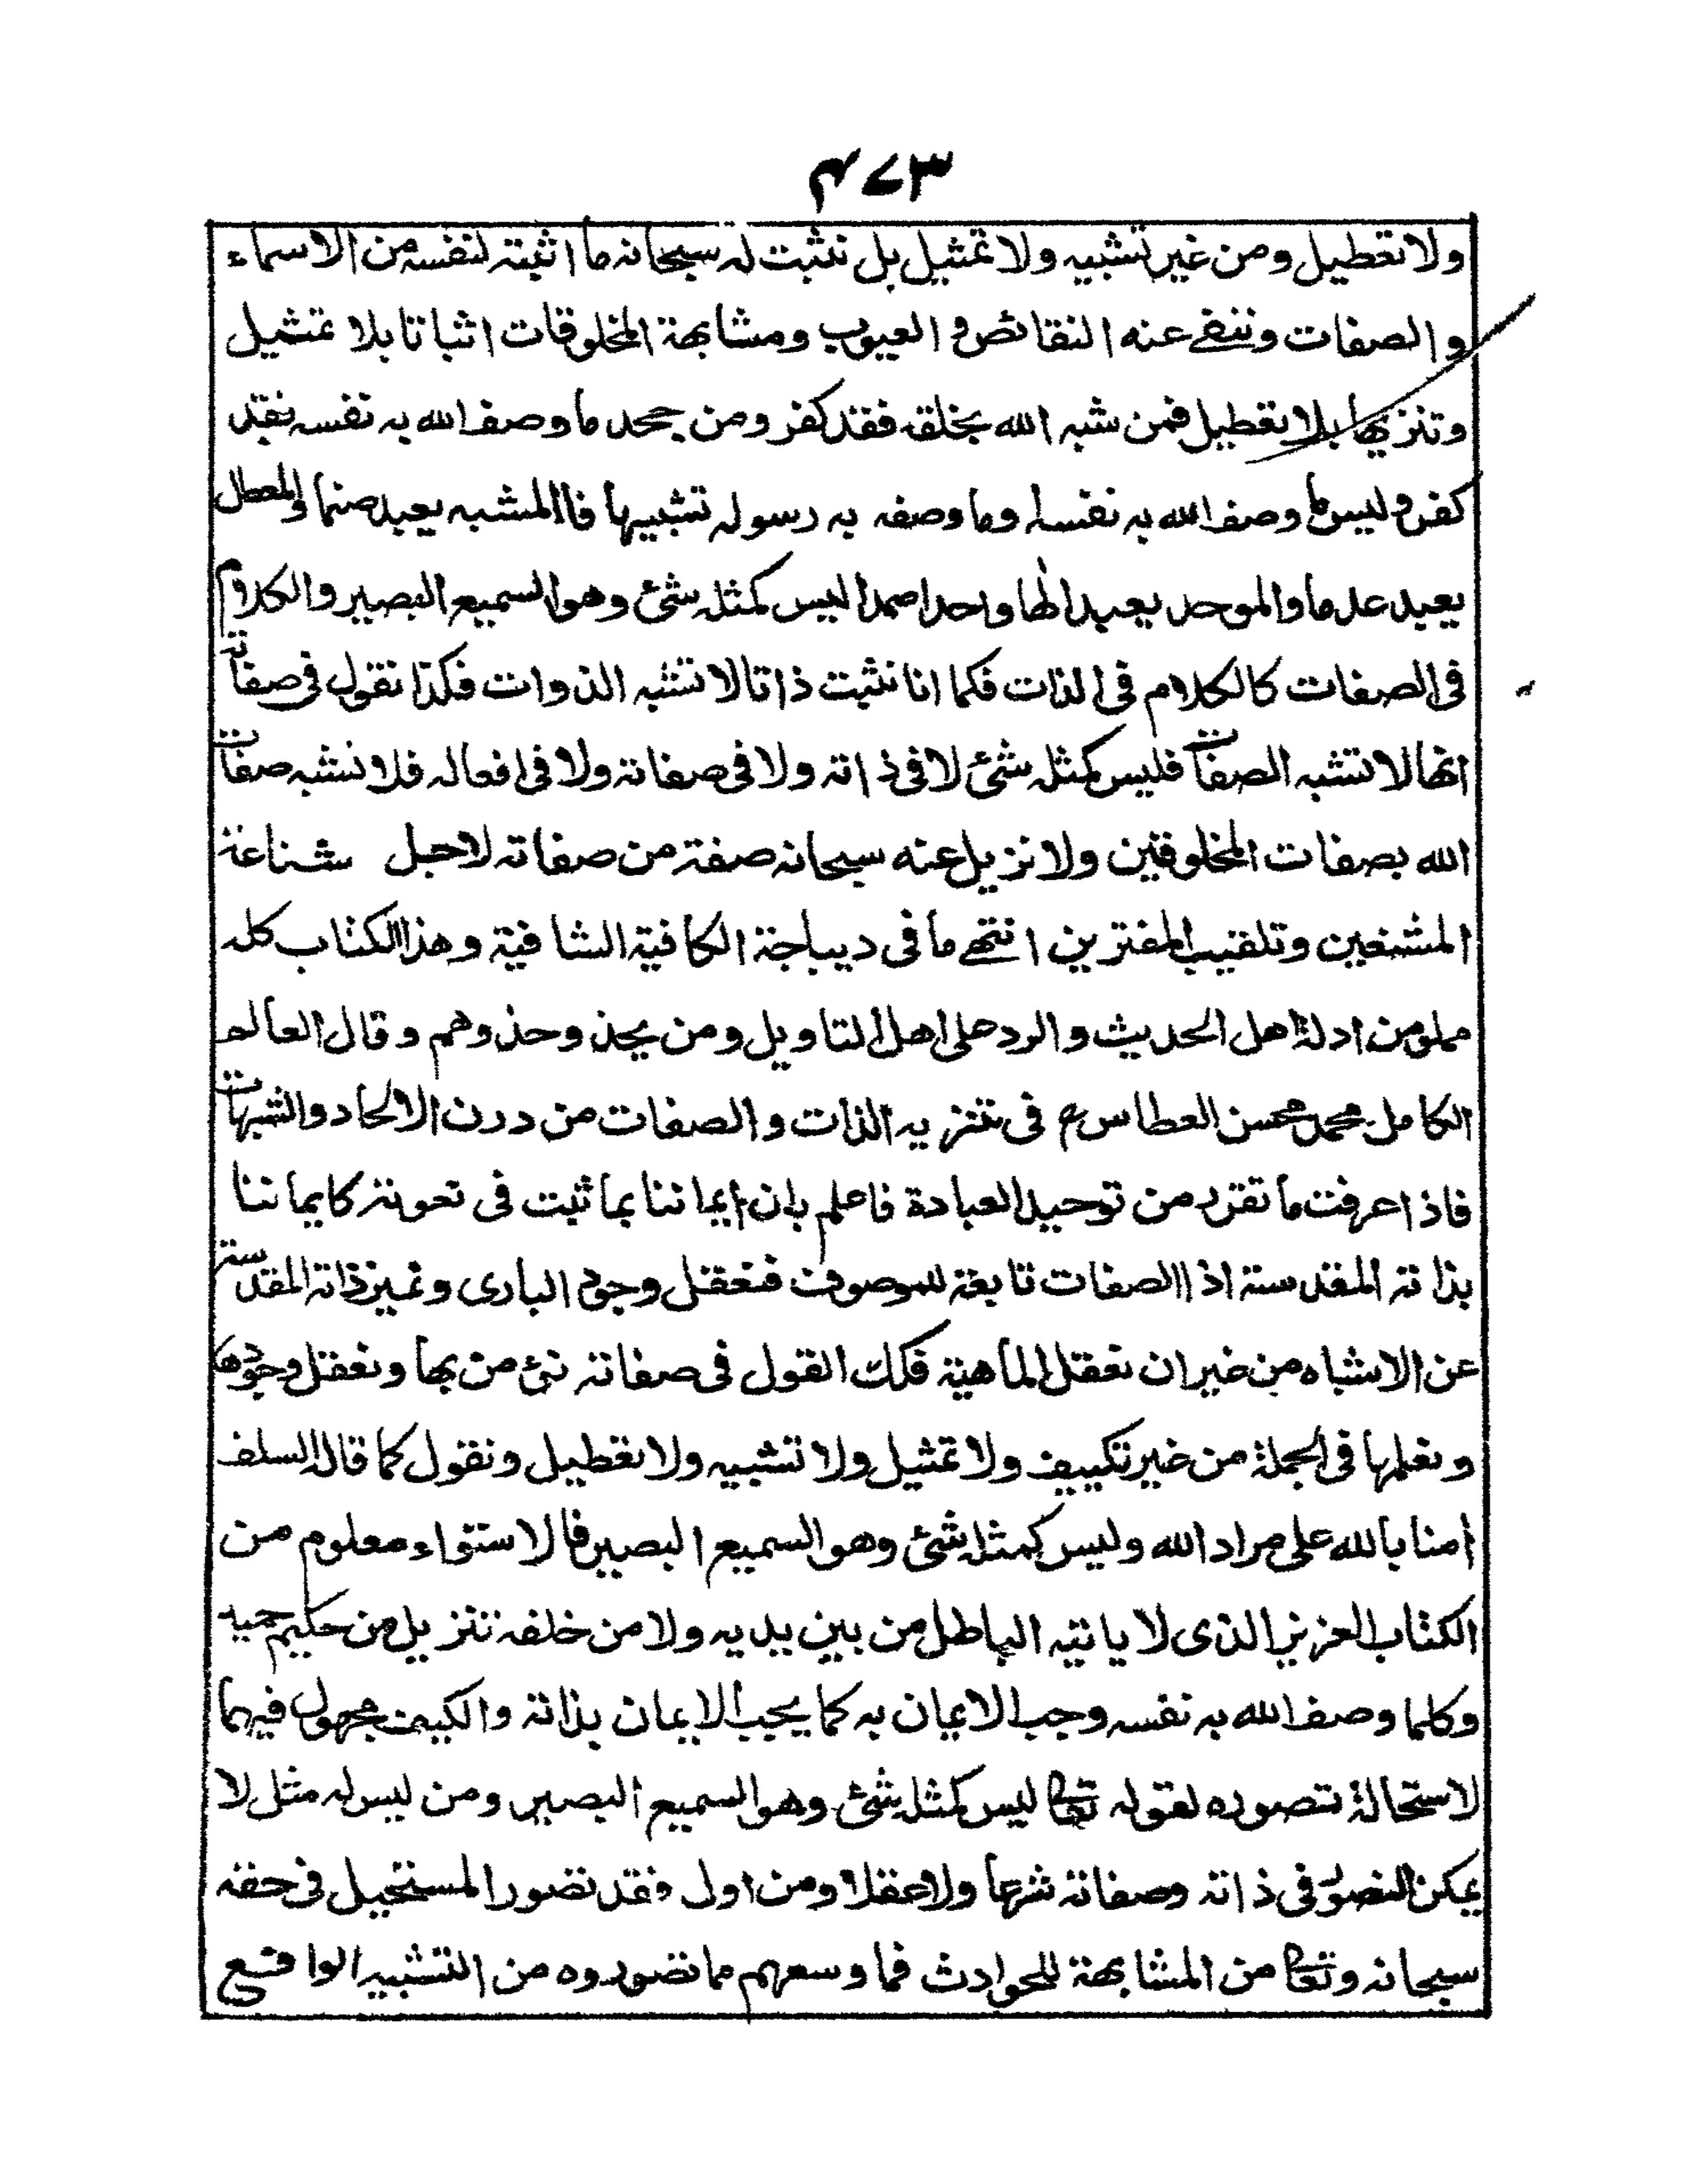 ۴۷۳
ولا تعطيل ومن غير تشبيه ولا تمثيل بل نثبت له سبحانه ما اثبته لنفسه من الاسماء
والصفات وننفى عنه النقائص والعيوب ومشابهة المخلوقات اثباتا بلا تمثيل
وتنزيها بلا تعطيل فمن شبه الله بخلقه فقد كفر ومن جحد ما وصف الله به نفسه فقد
كفر وليس ما وصف الله به نفسه او ما وصفه به رسوله تشبيها فاالمشبه يعبد صنما والمعطل
يعبد عدما والموحد يعبد الٰها واحدا صمدا ليس كمثله شئ وهو السميع البصير والكلام
فى الصفات كالكلام فى الذات فكما انا نثبت ذاتا لا تشبه الذوات فكذا نقول فى صفاته
انها لا تشبه الصفات فليس كمثله شئ لا فى ذاته ولا فى صفاته ولا فى افعاله فلا نشبه صفات
الله بصفات المخلوقين ولا نزيل عنه سبحانه صفة من صفاته لاجل شناعة
المشنعين وتلقيب المفترين انتهى ما فى ديباجة الكافية الشافية وهذا الكتاب كله
مملو من ادلة اهل الحديث والرد على اهل التاويل ومن يحذ وحذوهم وقال العالم
الكامل محمد محسن العطاس رح فى تنزيه الذات والصفات من درن الالحاد والشبهات
فاذا عرفت ما تقرر من توحيد العبادة فاعلم بان ايماننا بما ثبت فى نعوته كايماننا
بذاته المقدسة اذ الصفات تابعة للموصوف فنعقل وجود البارى ونميز ذاته المقدسة
عن الاشباه من غير ان نعقل الماهية فكك القول فى صفاته نؤمن بها ونعقل وجودها
ونعلمها فى الجملة من غير تكييف ولا تمثيل ولا تشبيه ولا تعطيل ونقول كما قال السلف
أمنا بالله على مراد الله وليس كمثله شئ وهو السميع البصير فالاستواء معلوم من
الكتاب العزيز الذى لا ياتيه الباطل من بين يديه ولا من خلفه تنزيل من حكيم حميد
وكلما وصف الله به نفسه وجب الايمان به كما يجب الايمان بذاته والكيف مجهول فيهما
لاستحالة تصوره لقوله تعالى ليس كمثله شئ وهو السميع البصير ومن ليس له مثل لا
يمكن التصور فى ذاته وصفاته شرعا ولا عقلا ومن اول فقد تصور المستحيل فى حقه
سبحانه وتعالى من المشابهة للحوادث فما وسعهم مما تصوروه من التشبيه الواقع